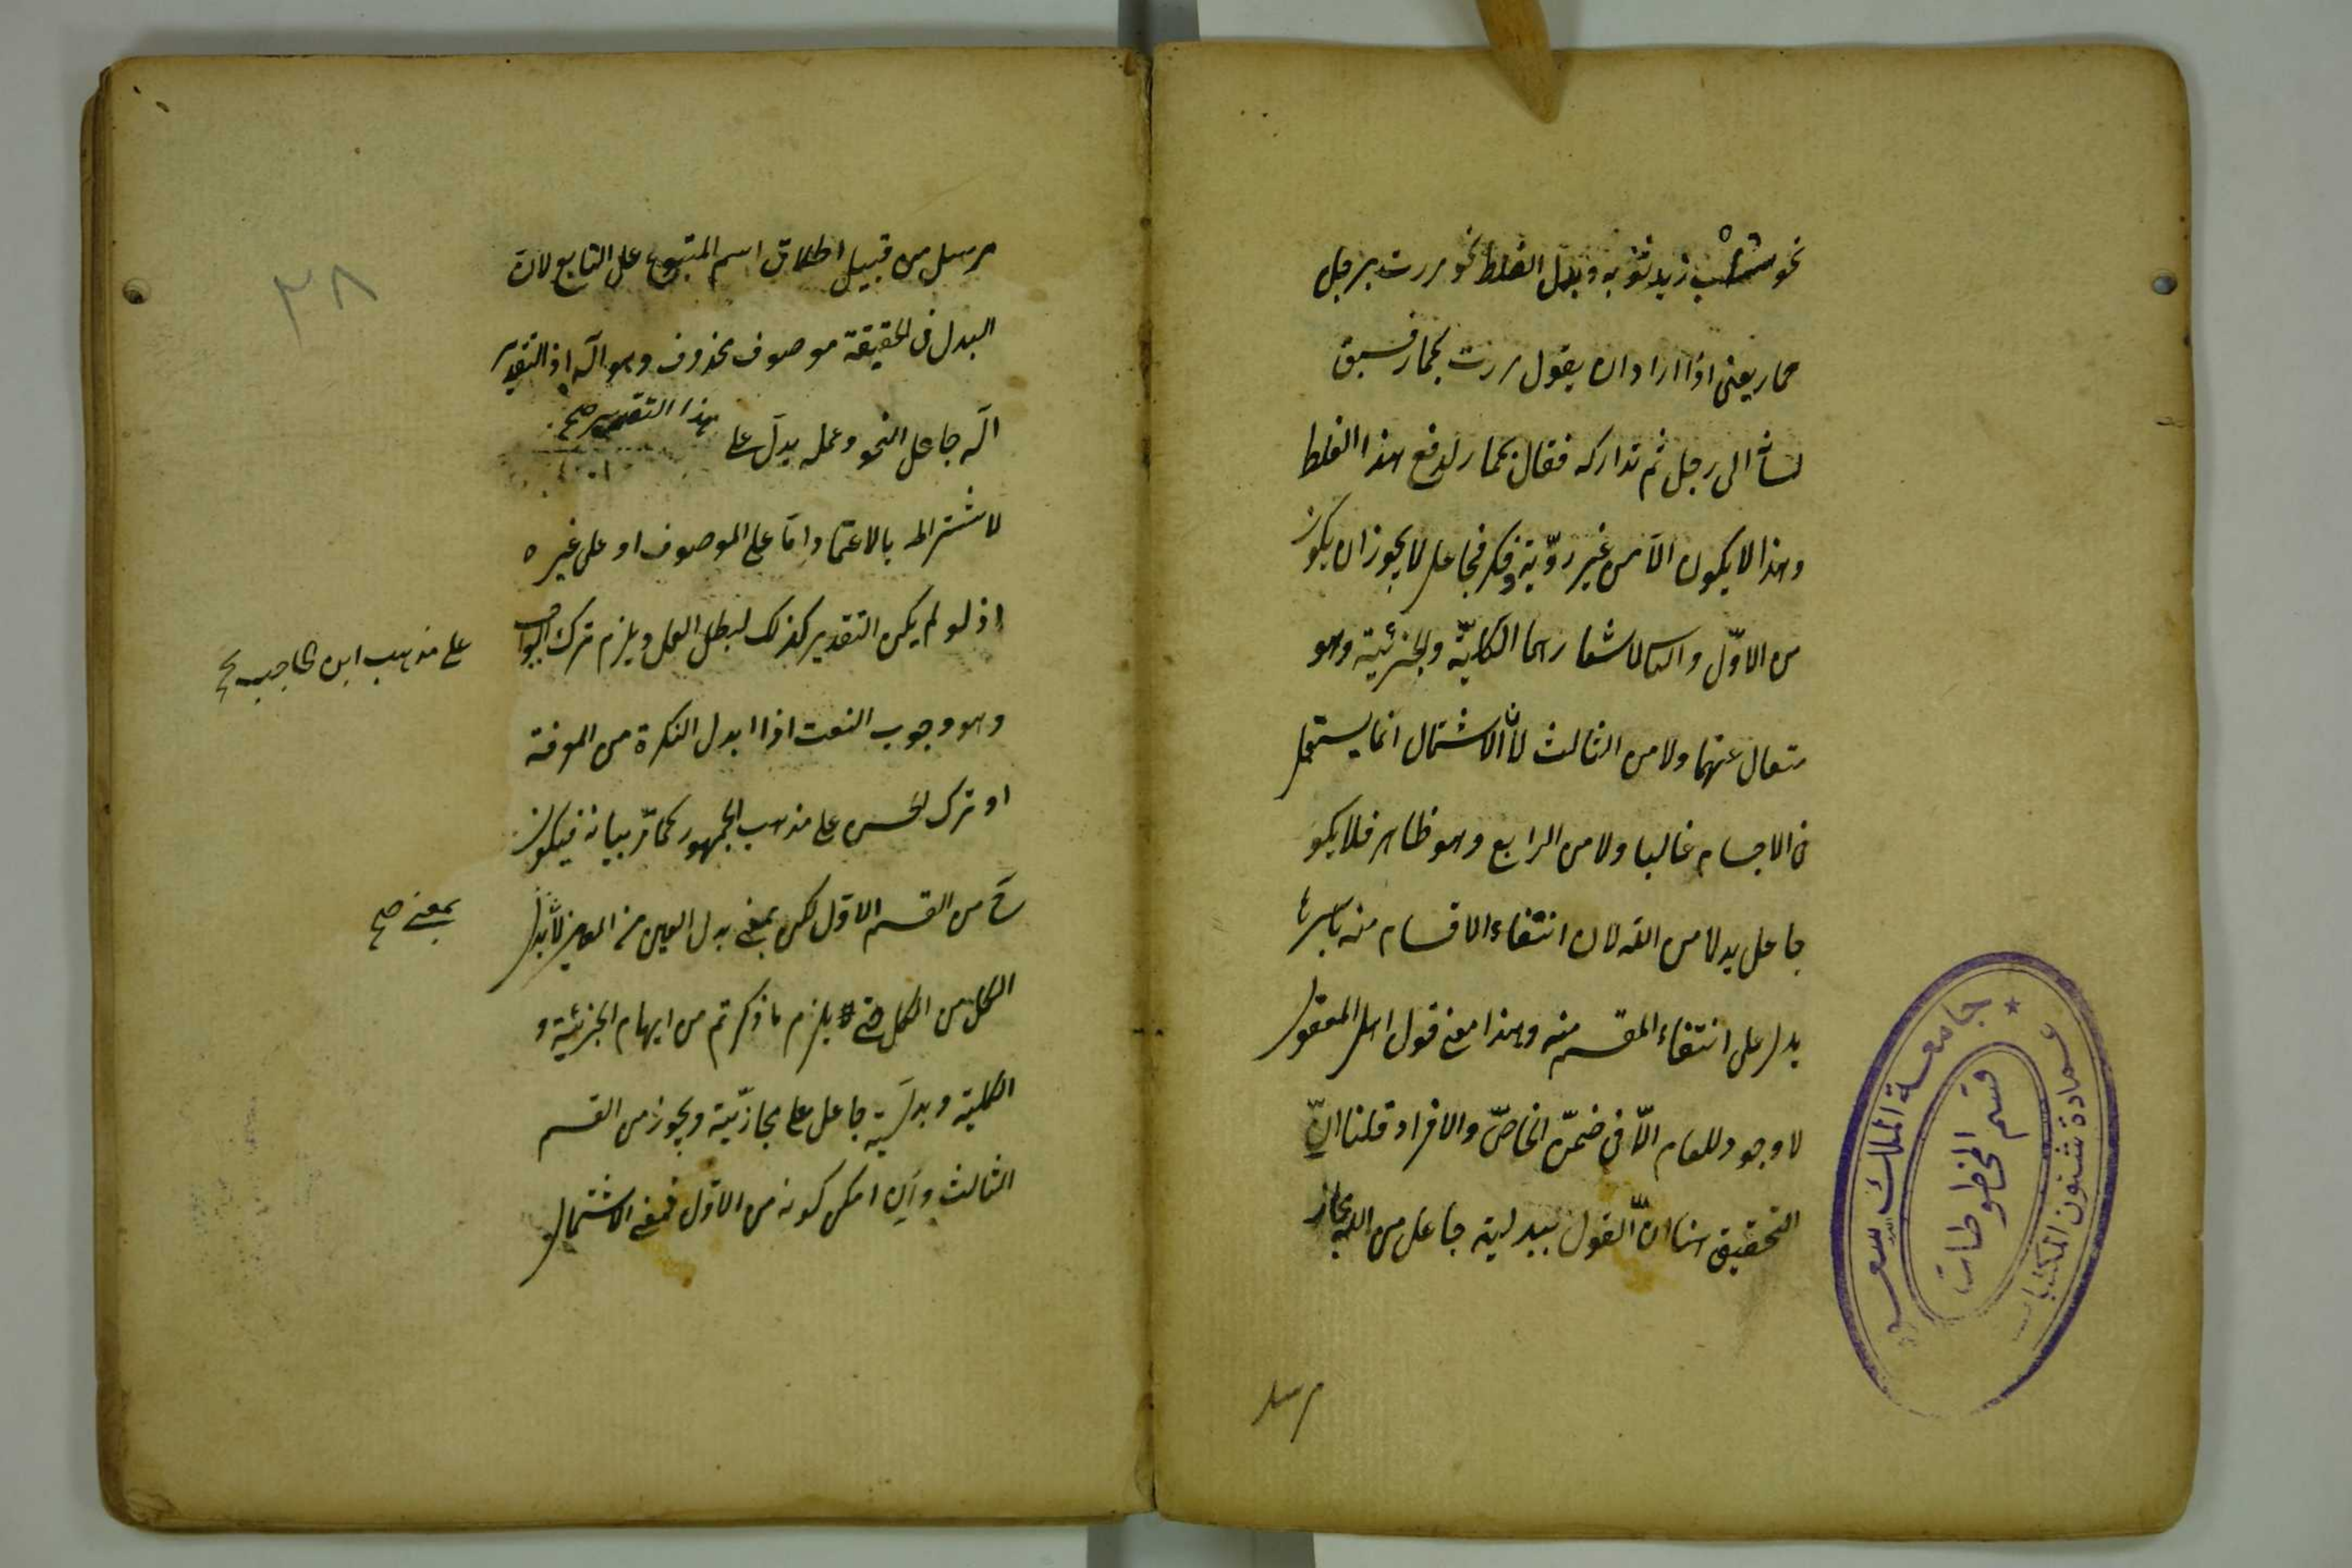 نحو سلب زيد ثوبه وبدل الغلط نحو مررت برجل
حمار يعنى اذا اراد ان يقول مررت بحمار فسبق
لسانه الى رجل ثم تداركه فقال بحمار لدفع هذا الغلط
وهذا لا يكون الا من غير روّية وفكر فجاعل لا يجوز ان يكون
من الاوّل والثانى لاشعارهما الكليّة والجزئية وهو
متعال عنهما ولا من الثالث لأن الاشتمال انما يستعمل
فى الاجسام غالبا ولا من الرابع وهو ظاهر فلا يكو
جاعل بدلا من الله لان انتفاء الاقسام منه باسرها
يدل على انتفاء المقسم منه وهذا معنى قول اهل المعقول
لا وجود للعام الّا فى ضمن الخاصّ والافراد قلنا انّ
التحقيق هنا انّ القول ببدلية جاعل من الله مجاز
مرسل
جامعة الملك سعود
عمادة شئون المكتبات
قسم المخطوطات
٣٨
مرسل من قبيل اطلاق اسم المتبوع على التابع لان
البدل فى الحقيقة موصوف محذوف وهو اله اذ التقدير
اله جاعل النحو وعمله يدل على هذا التقدير صح
لاشتراطه بالاعتماد امّا على الموصوف او على غيره
اذ لو لم يكن التقدير كذلك لبطل العمل ويلزم ترك الواجب
على مذهب ابن الحاجب صح
وهو وجوب النعت اذا ابدل النكرة من المعرفة
او ترك الحسن على مذهب الجمهور كما مرّ بيانه فيكون
ح من القسم الاوّل لكن بمعنى بدل العين من العين لا بدل
بمعنى صح
الكل من الكل حتى يلزم ما ذكرتم من ايهام الجزئية و
الكلية وبدليّة جاعل على مجازيّة ويجوز من القسم
الثالث وان امكن كونه من الاوّل فمعنى الاشتمال